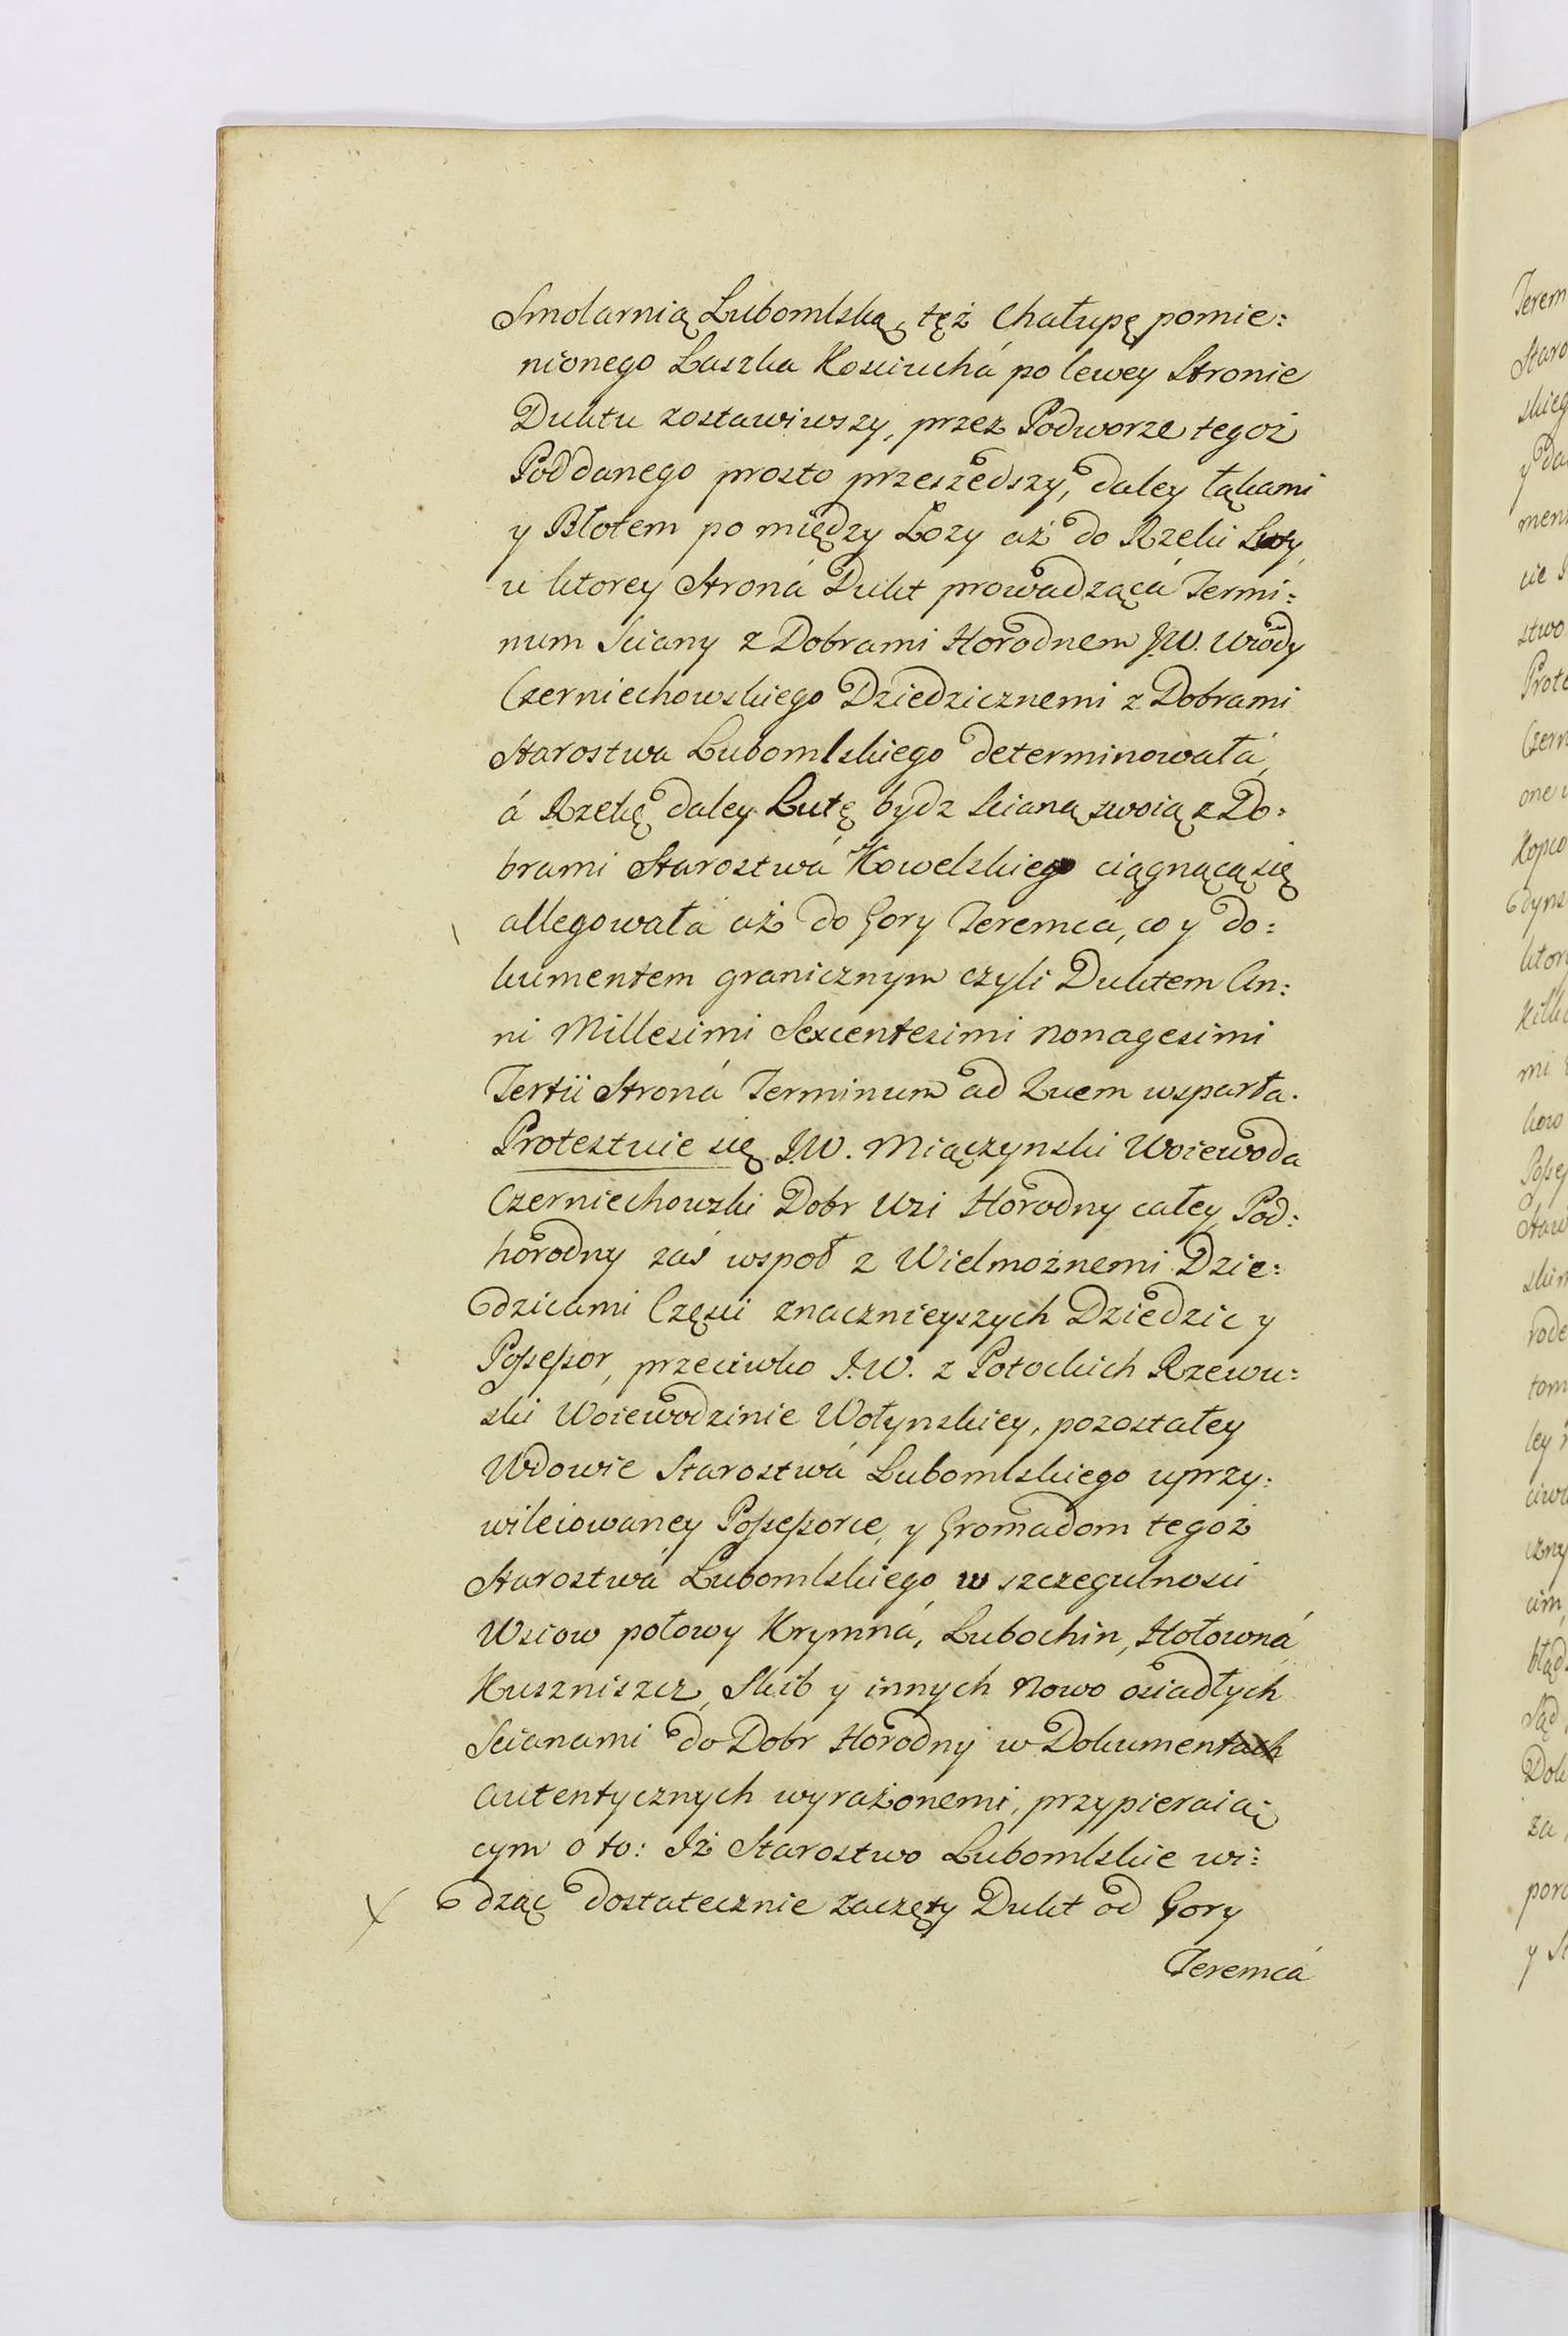 Smolarnią Lubomlską, tęż Chałupę pomie:
nionego Laszka Kosciuchá po lewey Stronie
Duktu zostawiwszy, przez Podworze tegoż
Poddanego prosto przeszedszy, daley łąkami
y Błotem po między Łozy aż do Rzeki Luty
u ktorey Stroná Dukt prowadzącá Termi:
num Sciany z Dobrami Horodnem J.W. Wdy
Czerniechowskiego Dziedzicznemi z Dobrami
Starostwa Lubomlskiego determinowałá,
á Rzekę daley Lutę bydz scianą swoią z Do:
brami Starostwá Kowelskiego ciągnącą się
allegowałá aż do Gory Teremcá, co y do:
kumentem granicznym czyli Duktem An:
ni Millesimi Sexcentesimi Nonagesimi
Tertii Stroná Terminum ad Quem wsparła.
Protestuie się J.W. Miączynski Woiewoda
Czerniechowski Dobr Wsi Horodny całey, Pod:
horodny zaś wspoł z Wielmożnemi Dzie:
dzicami Częsci znacznieyszych Dziedzic y
Possessor, przeciwko J.W. z Potockich Rzewu:
ski Woiewodzinie Wołynskiey, pozostałey
Wdowie Starostwá Lubomlskiego uprzy:
wileiowaney Possessorce, y Gromadom tegoż
Starostwá Lubomlskiego w szczegulnosci
Wsiow połowy Krymná, Lubochin, Hołowná
Kuszniszcz, Skib y innych Nowo osiadłych
Scianami do Dobr Horodny w Dokumentach
Autentycznych wyrażonemi, przypieraią
cym o to: Iż Starostwo Lubomlskie wi:
dząc dostatecznie zaczęty Dukt od Gory
Teremcá